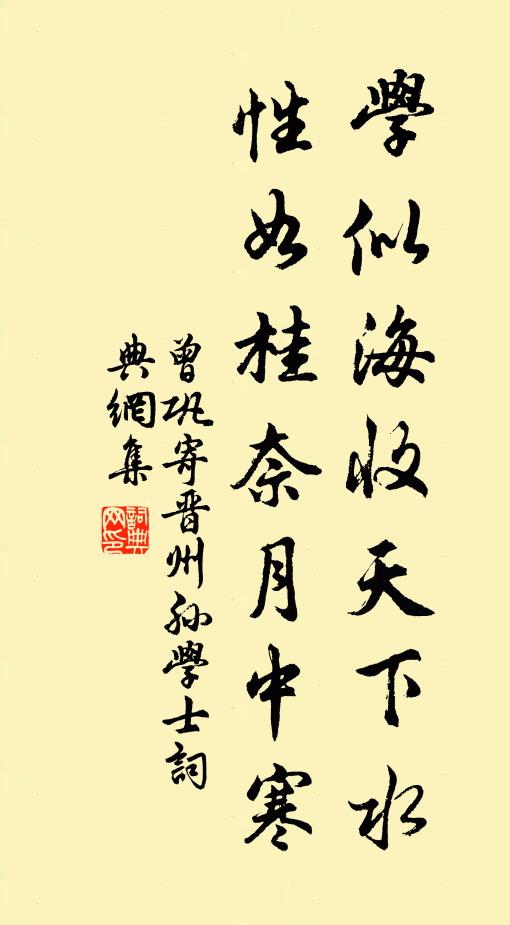 學似海收天下水
性如桂奈月中寒
曾巩寄晋州孙學士詞
典網集
詞典
网印